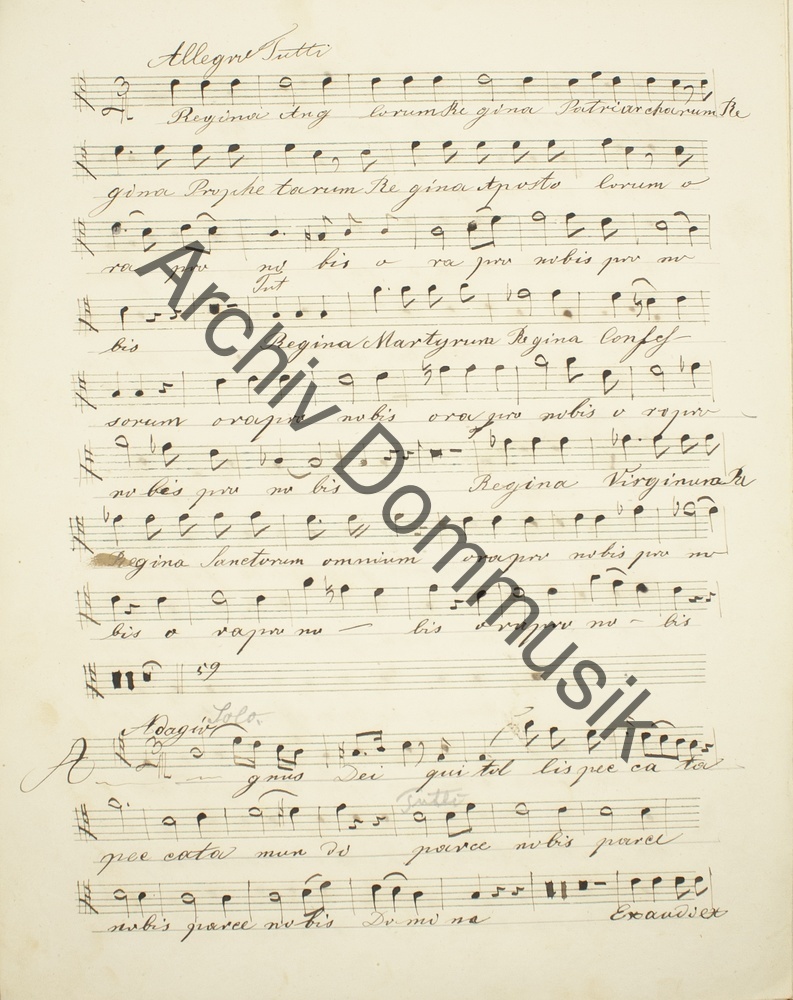 Allegro Tutti
Regina Ang lorum Re gina Patriarcharum Re
gina Prophe tarum Re gina Aposto lorum o
ra pro no bis o ra pro nobis pro no
Tut
bis Regina Martyrum Regina Confes-
sorum orapro nobis ora pro nobis o rapro
no bis pro no bis Regina Virginum Re
Regina Sanctorum omnium orapro nobis pro no
bis o rapro no - bis orapro no - bis
59
Adagio Solo.
A gnus Dei qui tol lis pec ca ta
Tutti
pec cata mun di parce nobis parce
nobis parce nobis Do mi ne Exaudi ex
Archiv Dommusik